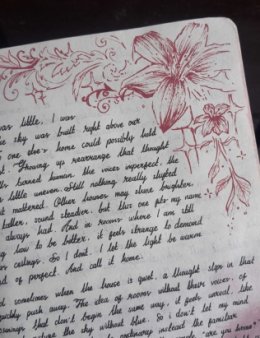 was little. I was
the sky was built right above our
one else's home could possibly hold
Growing up rearrange that thought
turned human. the voices imperfect, the
little uneven. Still nothing really
mattered. Other houses may shine brighter,
taller, sound steadier, but this one fits my name
always had. And in rooms where I am still
how to be better, it feels strange to demand
ceilings. So I don't. I let the light be warm
of perfect. And call it home.
sometimes when the house is quiet, a thought slips in that
quickly push away. The idea of rooms without their voices, of
that don't begin the same way, it feels unreal, like
the sky without blue. So i don't let my mind
ordinary instead. the familiar
"are you home"